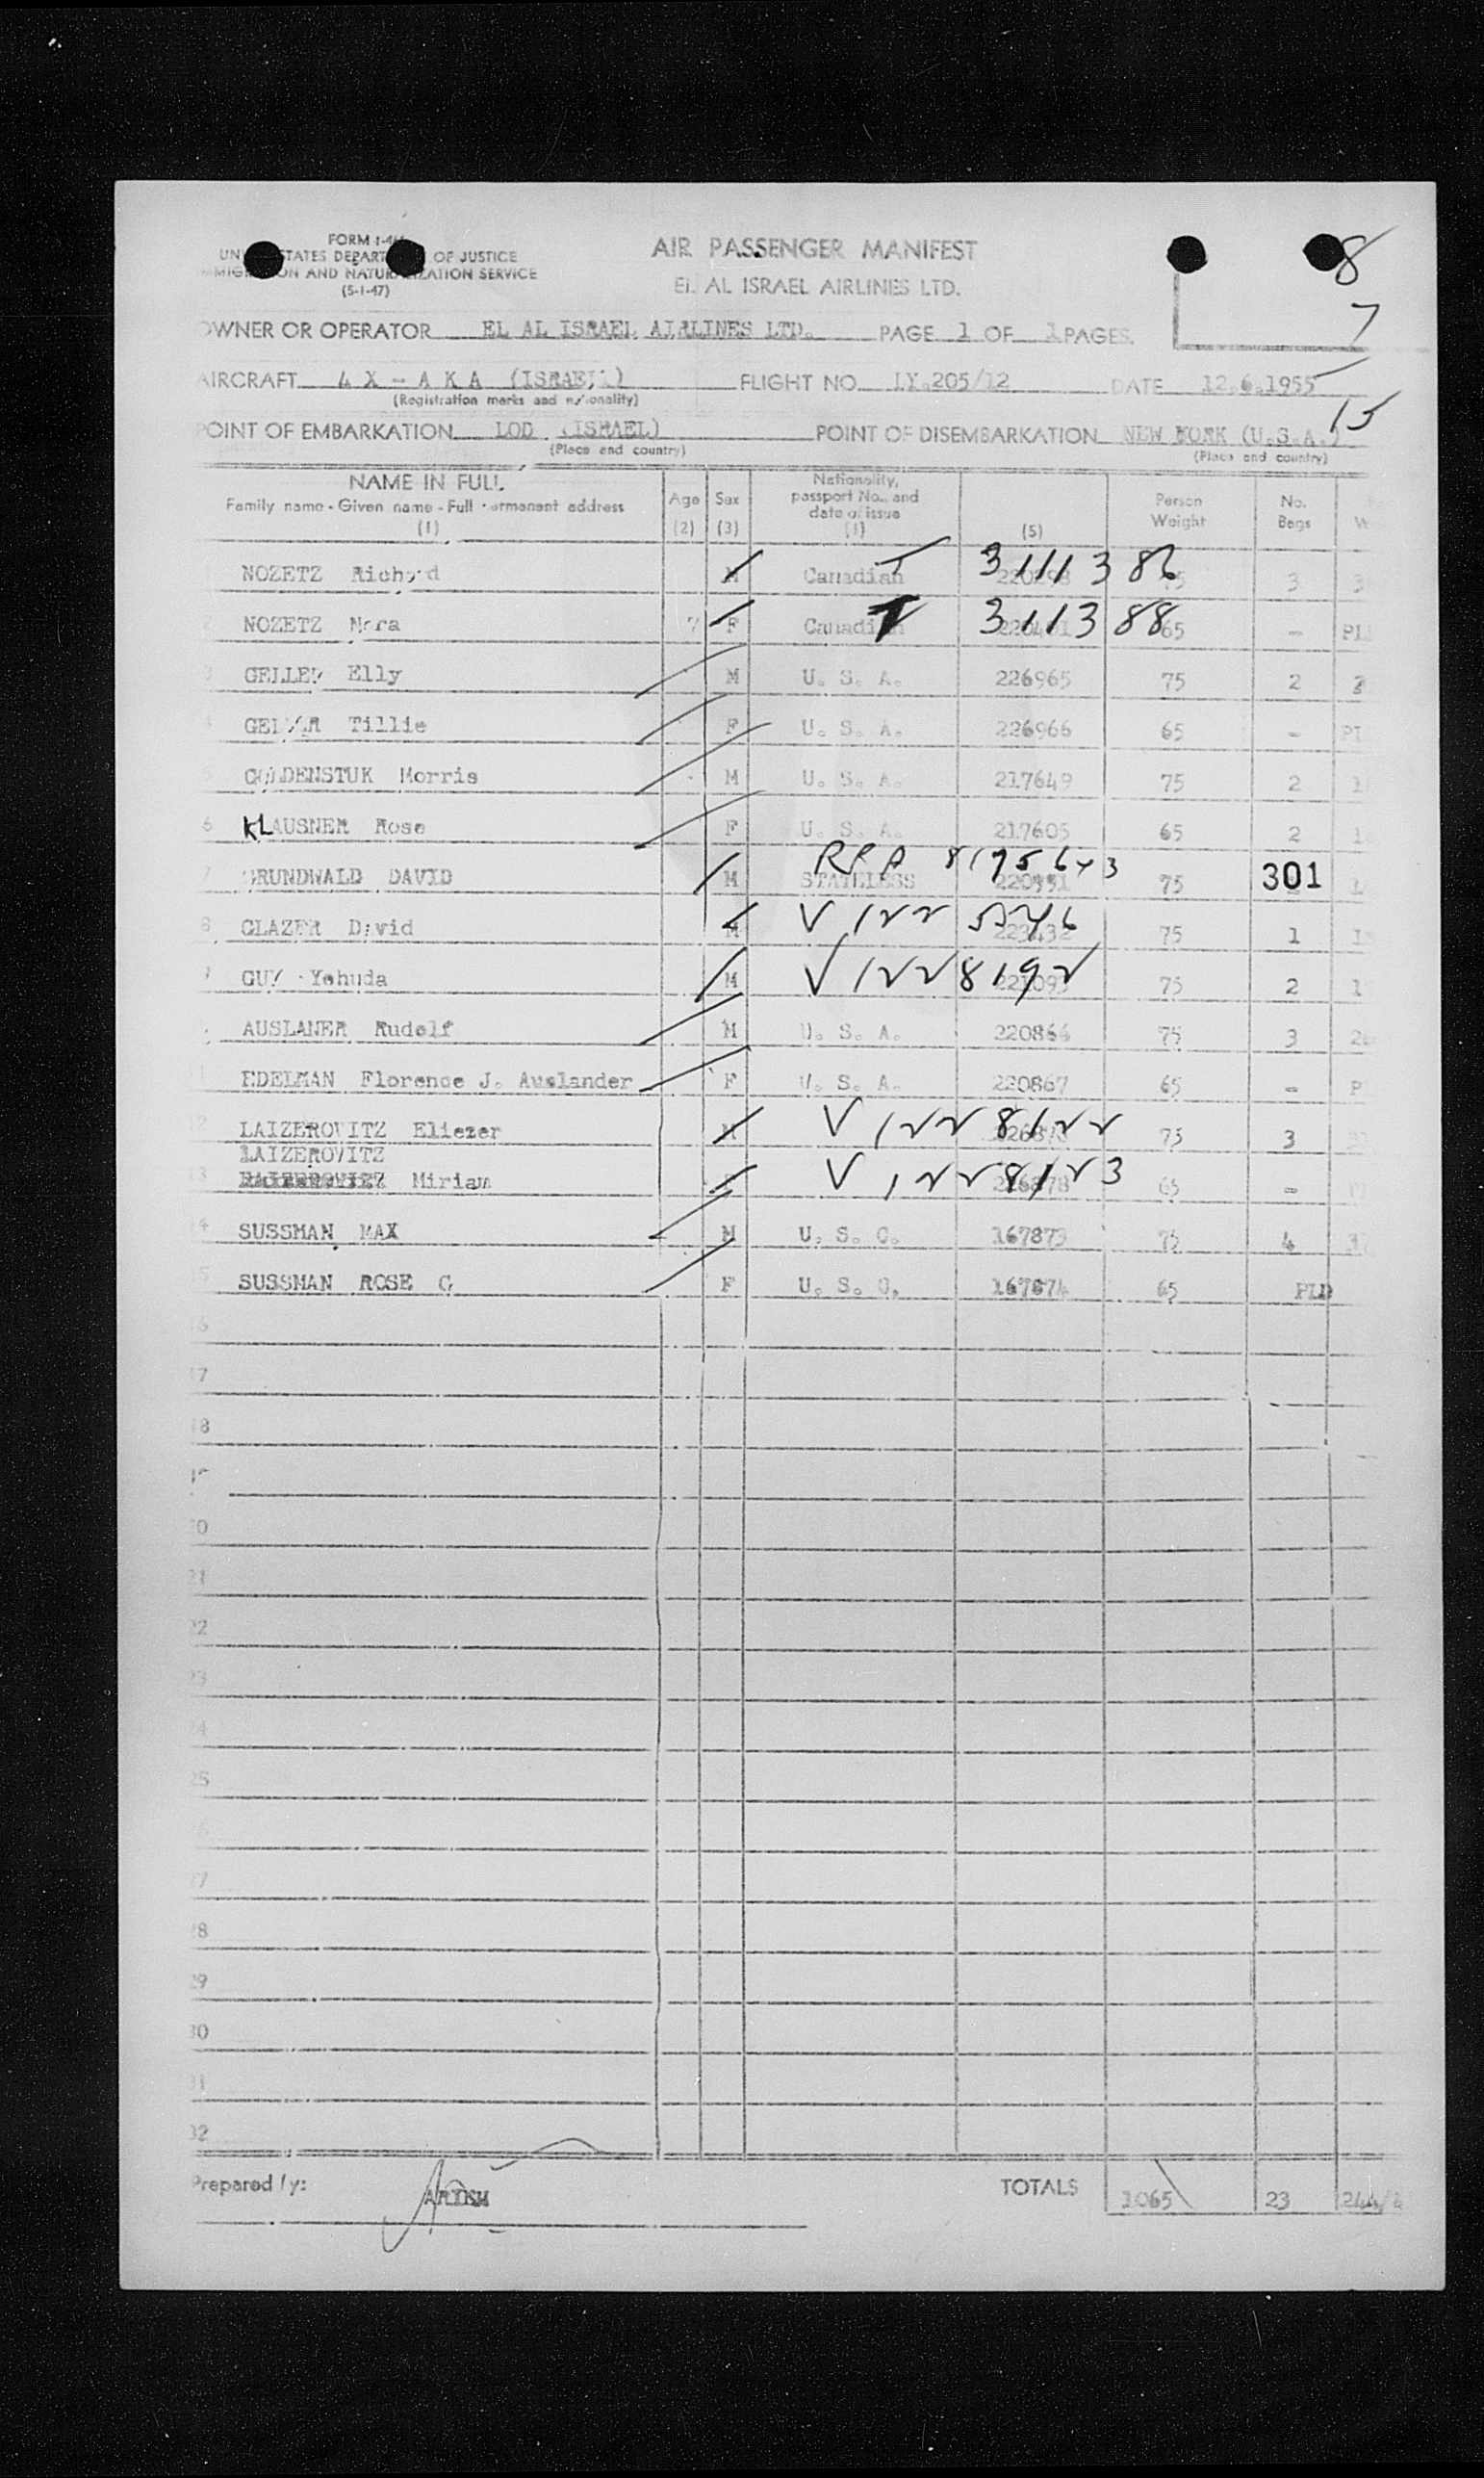 FORM I-4
UN STATES DEPART OF JUSTICE
MIG ON AND NATUR ZATION SERVICE
(5-1-47)
AIR PASSENGER MANIFEST
EL AL ISRAEL AIRLINES LTD.
8
7
OWNER OR OPERATOR EL AL ISRAEL AIRLINES LTD. PAGE 1 OF 1 PAGES.
AIRCRAFT 4 X - A K A (ISRAEL) FLIGHT NO. LY.205/12 DATE 12.6.1955
(Registration marks and nationality)
15
POINT OF EMBARKATION LOD (ISRAEL) POINT OF DISEMBARKATION NEW YORK (U.S.A.)
(Place and country) (Place and country)
NAME IN FULL Family name - Given name - Full permanent address (1) Age (2) Sex (3) Nationality, passport No. and date of issue (4) (5) Person Weight No. Bags W
NOZETZ Richard M Canadian T 3111386 3 3
NOZETZ Nora 7 F Canadian T 311388 65 - PL
3 GELLER Elly M U. S. A. 226965 75 2
4 GELLER Tillie F U. S. A. 226966 65 - PL
5 GOLDENSTUK Morris M U. S. A. 217649 75 2 1
6 KLAUSNER Rose F U. S. A. 217605 65 2 1
RPA 8175643
7 GRUNDWALD DAVID M STATELESS 75 301 1
8 GLAZER David M V 122 75 1
Yehuda M V 1228192 75 2 1
AUSLANER Rudolf M U. S. A. 220864 75 3
EDELMAN Florence J. Auslander F U. S. A. 220867 65 - P
12 LAIZEROVITZ Eliezer M V 1228122 75 3
LAIZEROVITZ
13 Miriam V 1228123 65 -
14 SUSSMAN MAX M U. S. C. 167873 75 4
15 SUSSMAN ROSE G F U. S. C. 167874 65 PLD
16
17
18
20
21
22
23
24
25
27
28
29
30
31
32
Prepared by: TOTALS 1065 23